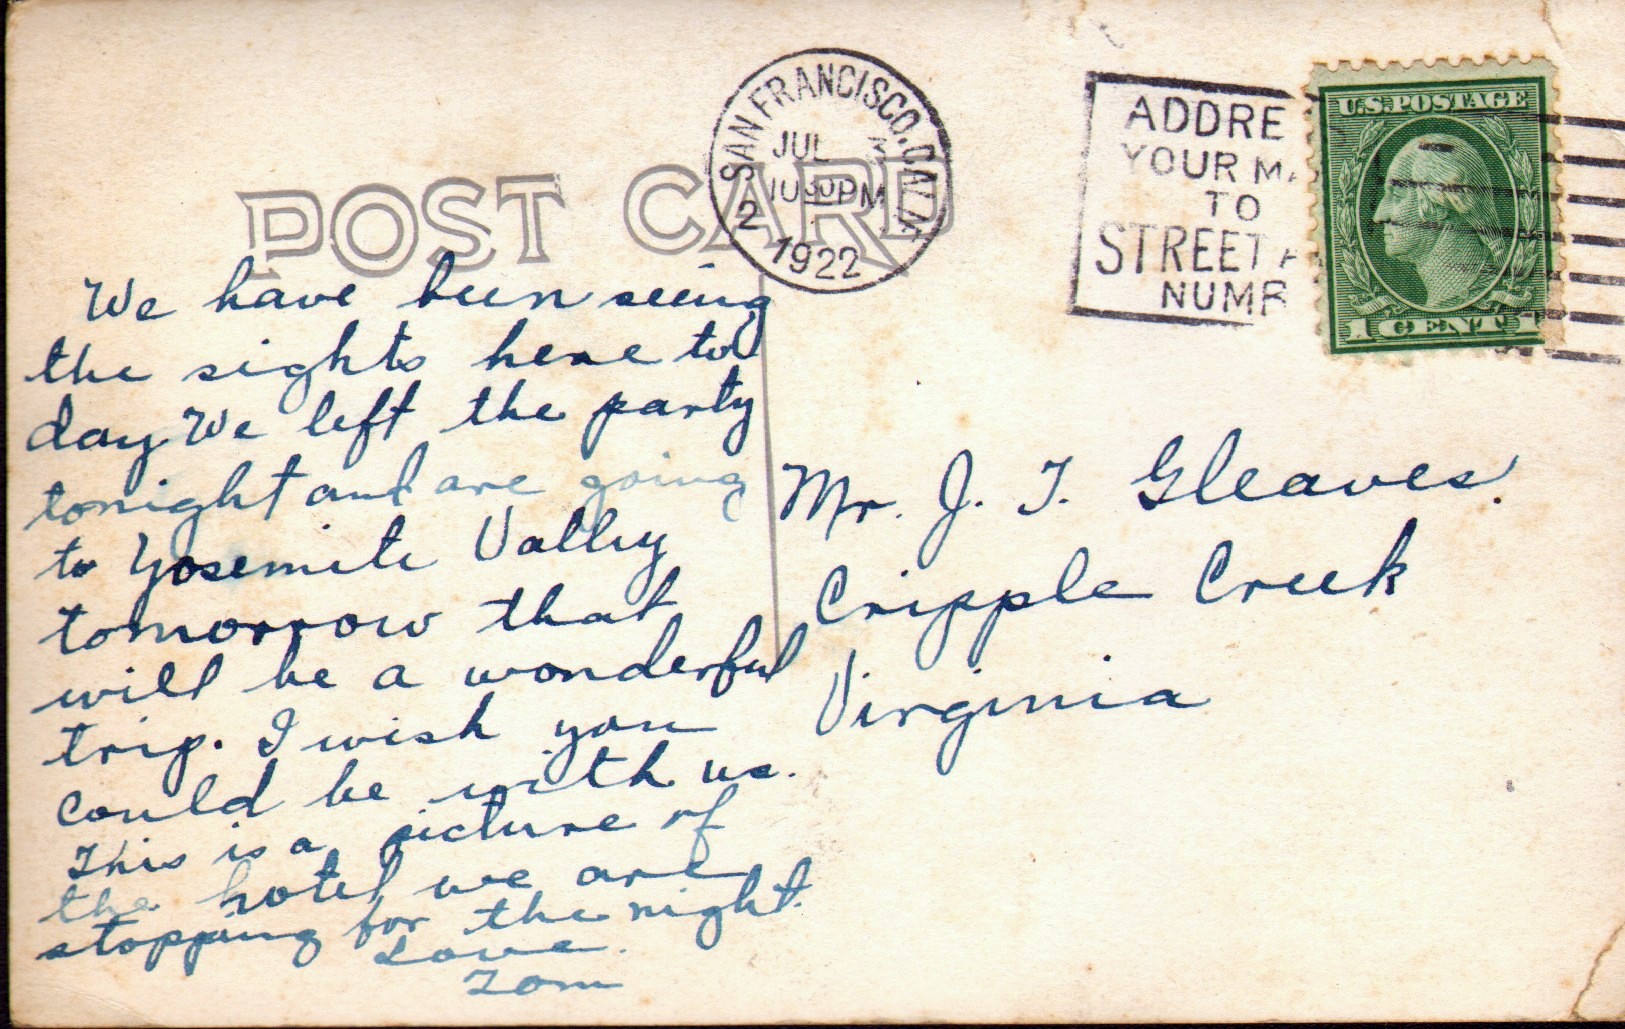 POST CARD
SAN FRANCISCO, CALIF.
JUL 3
10 30 PM
2 1922
ADDRE
YOUR MA
TO
STREET A
NUMB
U.S. POSTAGE
1 CENT 1
We have been seeing
the sights here to
day. We left the party
tonight and are going
to Yosemite Valley
tomorrow that
will be a wonderful
trip. I wish you
could be with us.
This is a picture of
the hotel we are
stopping for the night.
Love.
Tom
Mr. J. T. Gleaves.
Cripple Creek
Virginia